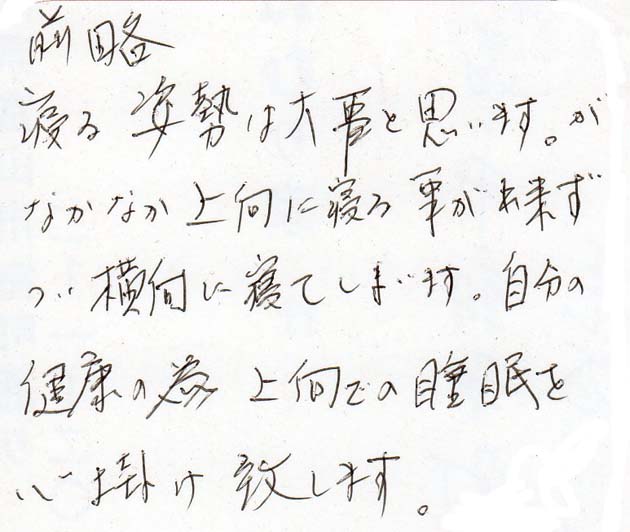 前略
寝る姿勢は大事と思います。が
なかなか上向に寝る事が出来ず
つい横向に寝てしまいます。自分の
健康の為 上向での睡眠を
心掛け致します。